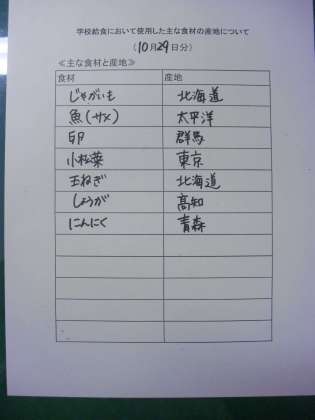 学校給食において使用した主な食材の産地について
(10月29日分)
≪主な食材と産地≫
食材 産地
じゃがいも 北海道
魚(サメ) 太平洋
卵 群馬
小松菜 東京
玉ねぎ 北海道
しょうが 高知
にんにく 青森